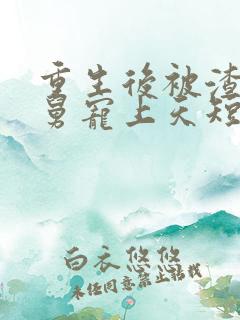 重生後被渣
舅寵上天短
白衣悠悠
未经同意禁止转载